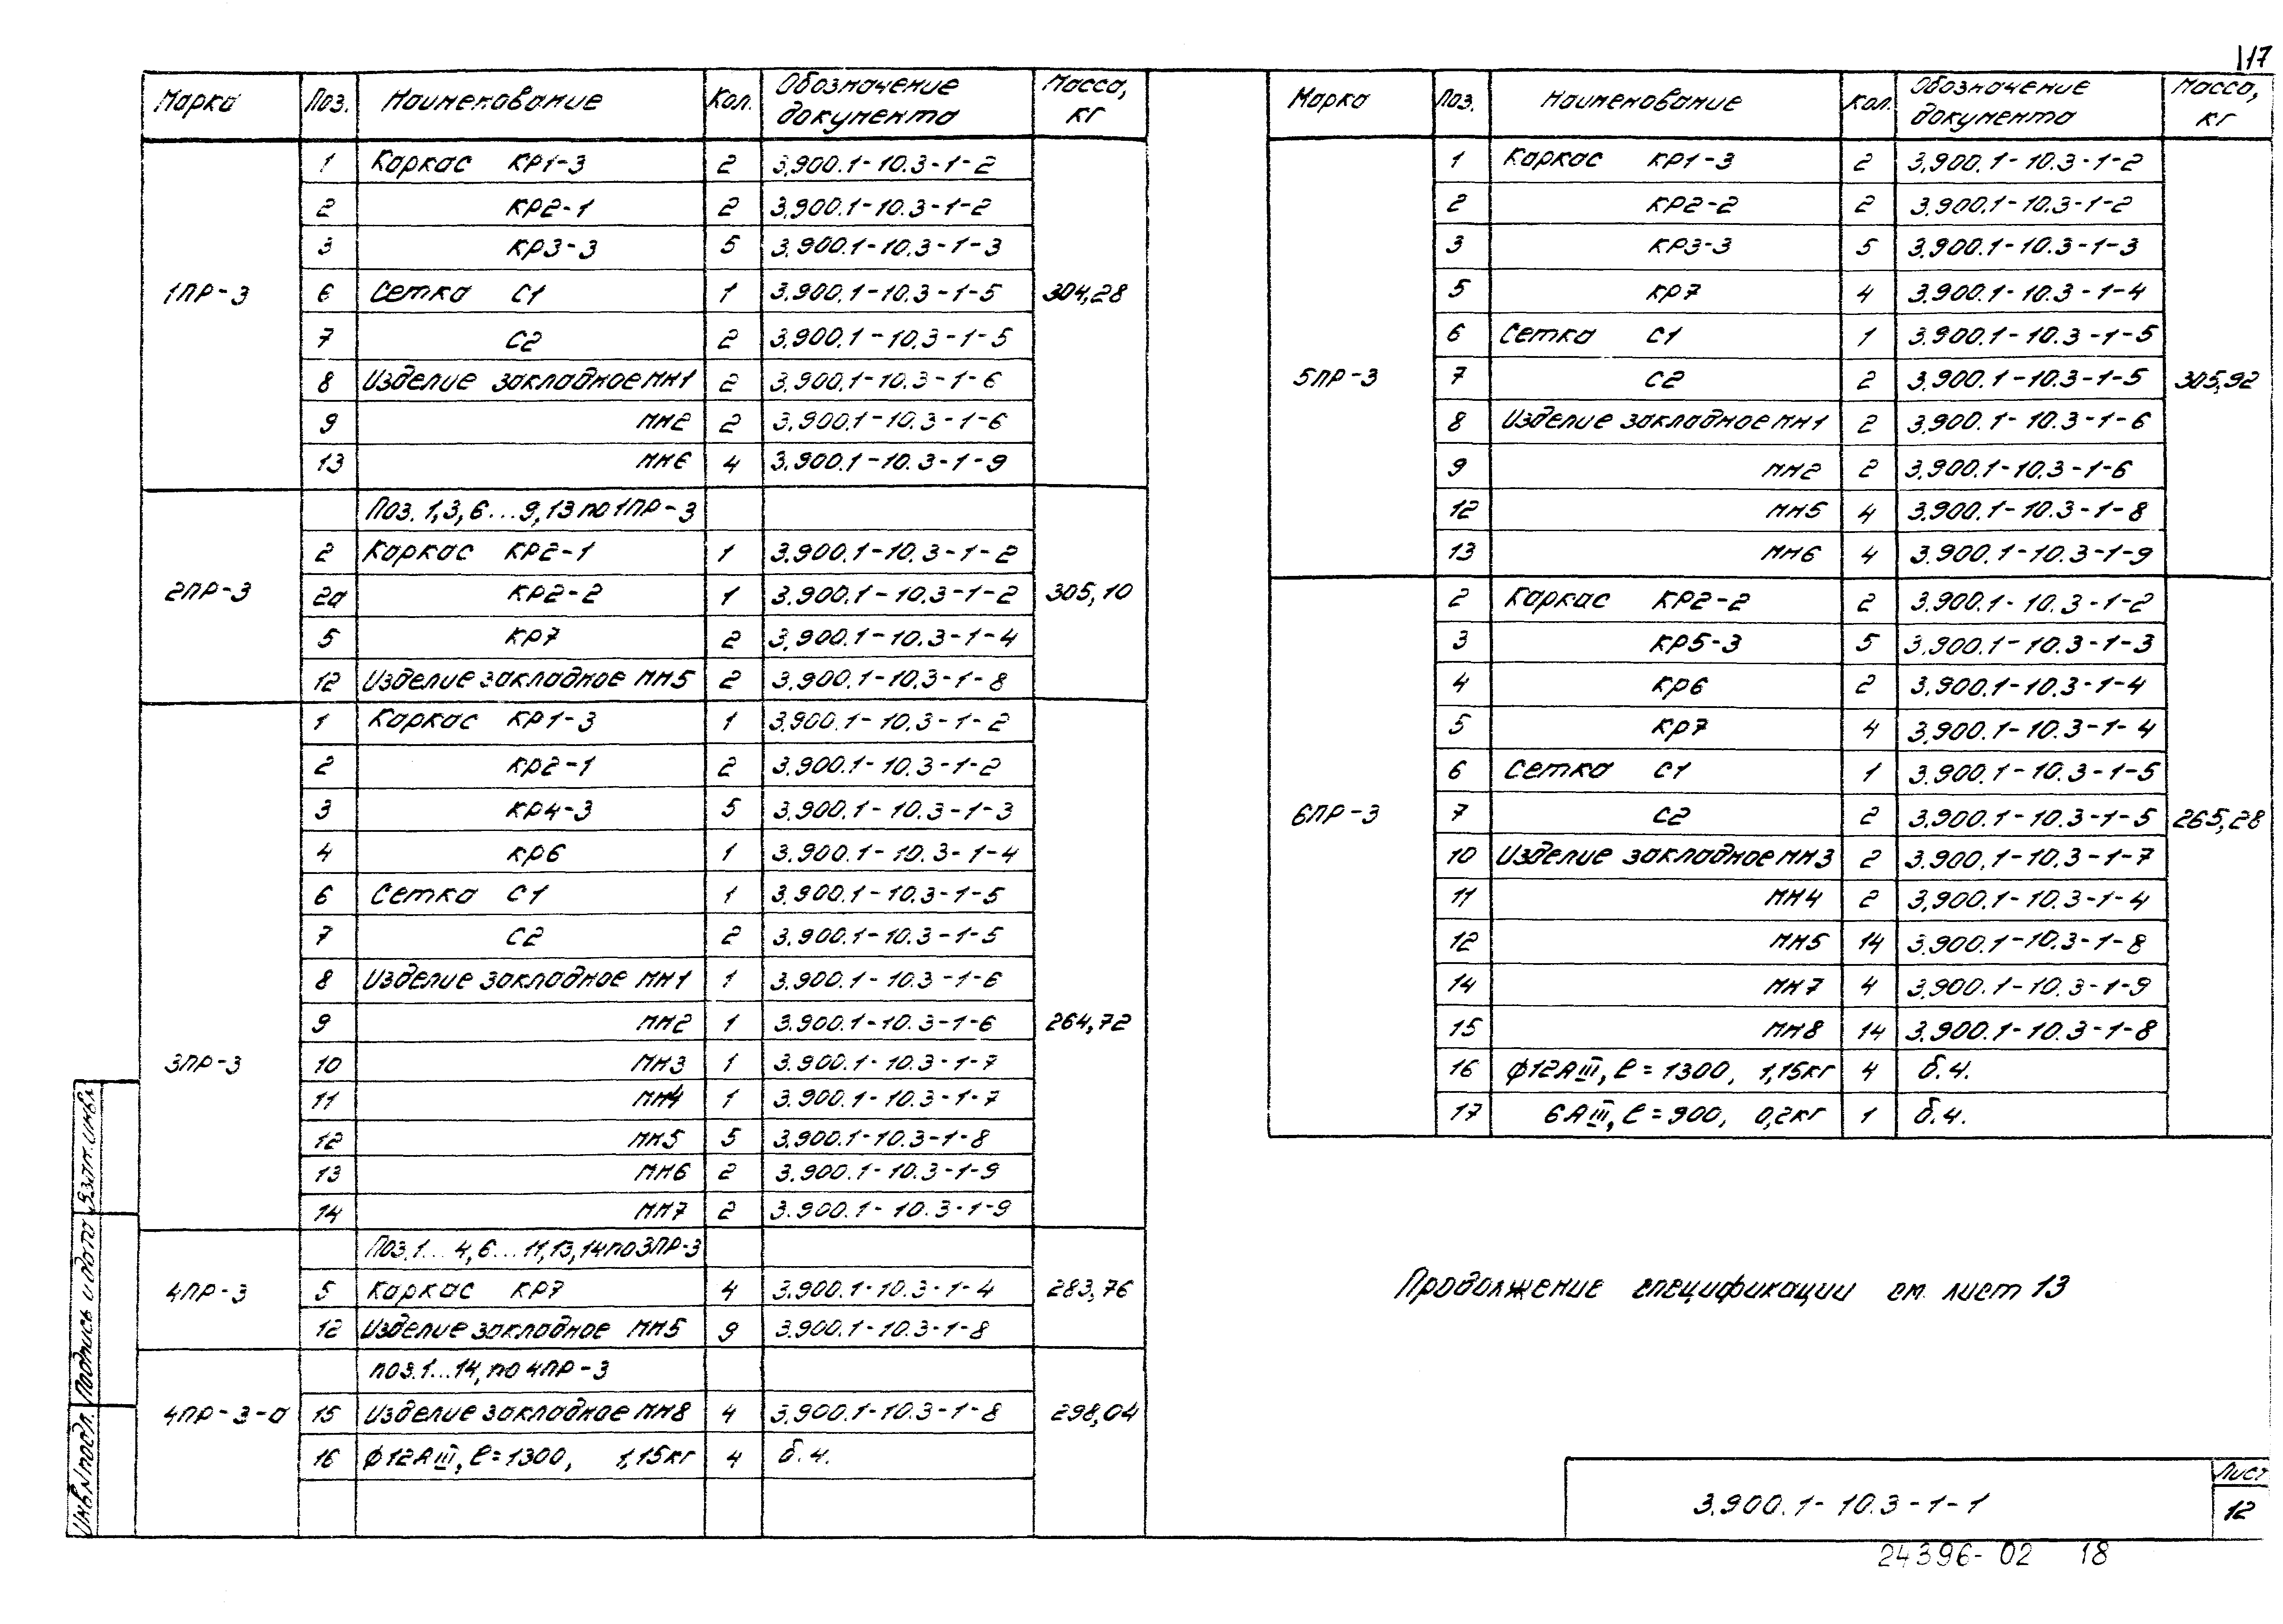 117
Марка Поз. Наименование Кол. Обозначение документа Масса, кг
1ПР-3 304,28
1 Каркас КР1-3 2 3.900.1-10.3-1-2
2 КР2-1 2 3.900.1-10.3-1-2
3 КР3-3 5 3.900.1-10.3-1-3
6 Сетка С1 1 3.900.1-10.3-1-5
7 С2 2 3.900.1-10.3-1-5
8 Изделие закладное МН1 2 3.900.1-10.3-1-6
9 МН2 2 3.900.1-10.3-1-6
13 МН6 4 3.900.1-10.3-1-9
2ПР-3 305,10
Поз. 1,3,6...9,13 по 1ПР-3
2 Каркас КР2-1 1 3.900.1-10.3-1-2
2а КР2-2 1 3.900.1-10.3-1-2
5 КР7 2 3.900.1-10.3-1-4
12 Изделие закладное МН5 2 3.900.1-10.3-1-8
3ПР-3 264,72
1 Каркас КР1-3 1 3.900.1-10.3-1-2
2 КР2-1 2 3.900.1-10.3-1-2
3 КР4-3 5 3.900.1-10.3-1-3
4 КР6 1 3.900.1-10.3-1-4
6 Сетка С1 1 3.900.1-10.3-1-5
7 С2 2 3.900.1-10.3-1-5
8 Изделие закладное МН1 1 3.900.1-10.3-1-6
9 МН2 1 3.900.1-10.3-1-6
10 МН3 1 3.900.1-10.3-1-7
11 МН4 1 3.900.1-10.3-1-7
12 МН5 5 3.900.1-10.3-1-8
13 МН6 2 3.900.1-10.3-1-9
14 МН7 2 3.900.1-10.3-1-9
4ПР-3 283,76
Поз.1...4,6...11,13,14 по 3ПР-3
5 Каркас КР7 4 3.900.1-10.3-1-4
12 Изделие закладное МН5 9 3.900.1-10.3-1-8
4ПР-3-а 298,04
поз.1...14, по 4ПР-3
15 Изделие закладное МН8 4 3.900.1-10.3-1-8
16 ϕ12АIII, ℓ=1300, 1,15кг 4 б.ч.
Марка Поз. Наименование Кол. Обозначение документа Масса, кг
5ПР-3 305,92
1 Каркас КР1-3 2 3.900.1-10.3-1-2
2 КР2-2 2 3.900.1-10.3-1-2
3 КР3-3 5 3.900.1-10.3-1-3
5 КР7 4 3.900.1-10.3-1-4
6 Сетка С1 1 3.900.1-10.3-1-5
7 С2 2 3.900.1-10.3-1-5
8 Изделие закладное МН1 2 3.900.1-10.3-1-6
9 МН2 2 3.900.1-10.3-1-6
12 МН5 4 3.900.1-10.3-1-8
13 МН6 4 3.900.1-10.3-1-9
6ПР-3 265,28
2 Каркас КР2-2 2 3.900.1-10.3-1-2
3 КР5-3 5 3.900.1-10.3-1-3
4 КР6 2 3.900.1-10.3-1-4
5 КР7 4 3.900.1-10.3-1-4
6 Сетка С1 1 3.900.1-10.3-1-5
7 С2 2 3.900.1-10.3-1-5
10 Изделие закладное МН3 2 3.900.1-10.3-1-7
11 МН4 2 3.900.1-10.3-1-4
12 МН5 14 3.900.1-10.3-1-8
14 МН7 4 3.900.1-10.3-1-9
15 МН8 14 3.900.1-10.3-1-8
16 ϕ12АIII, ℓ=1300, 1,15кг 4 б.ч.
17 6АIII, ℓ=900, 0,2кг 1 б.ч.
Продолжение спецификации см. лист 13
Инв.N подл. Подпись и дата Взам.инв.N
3.900.1-10.3-1-1
Лист
12
24396-02 18